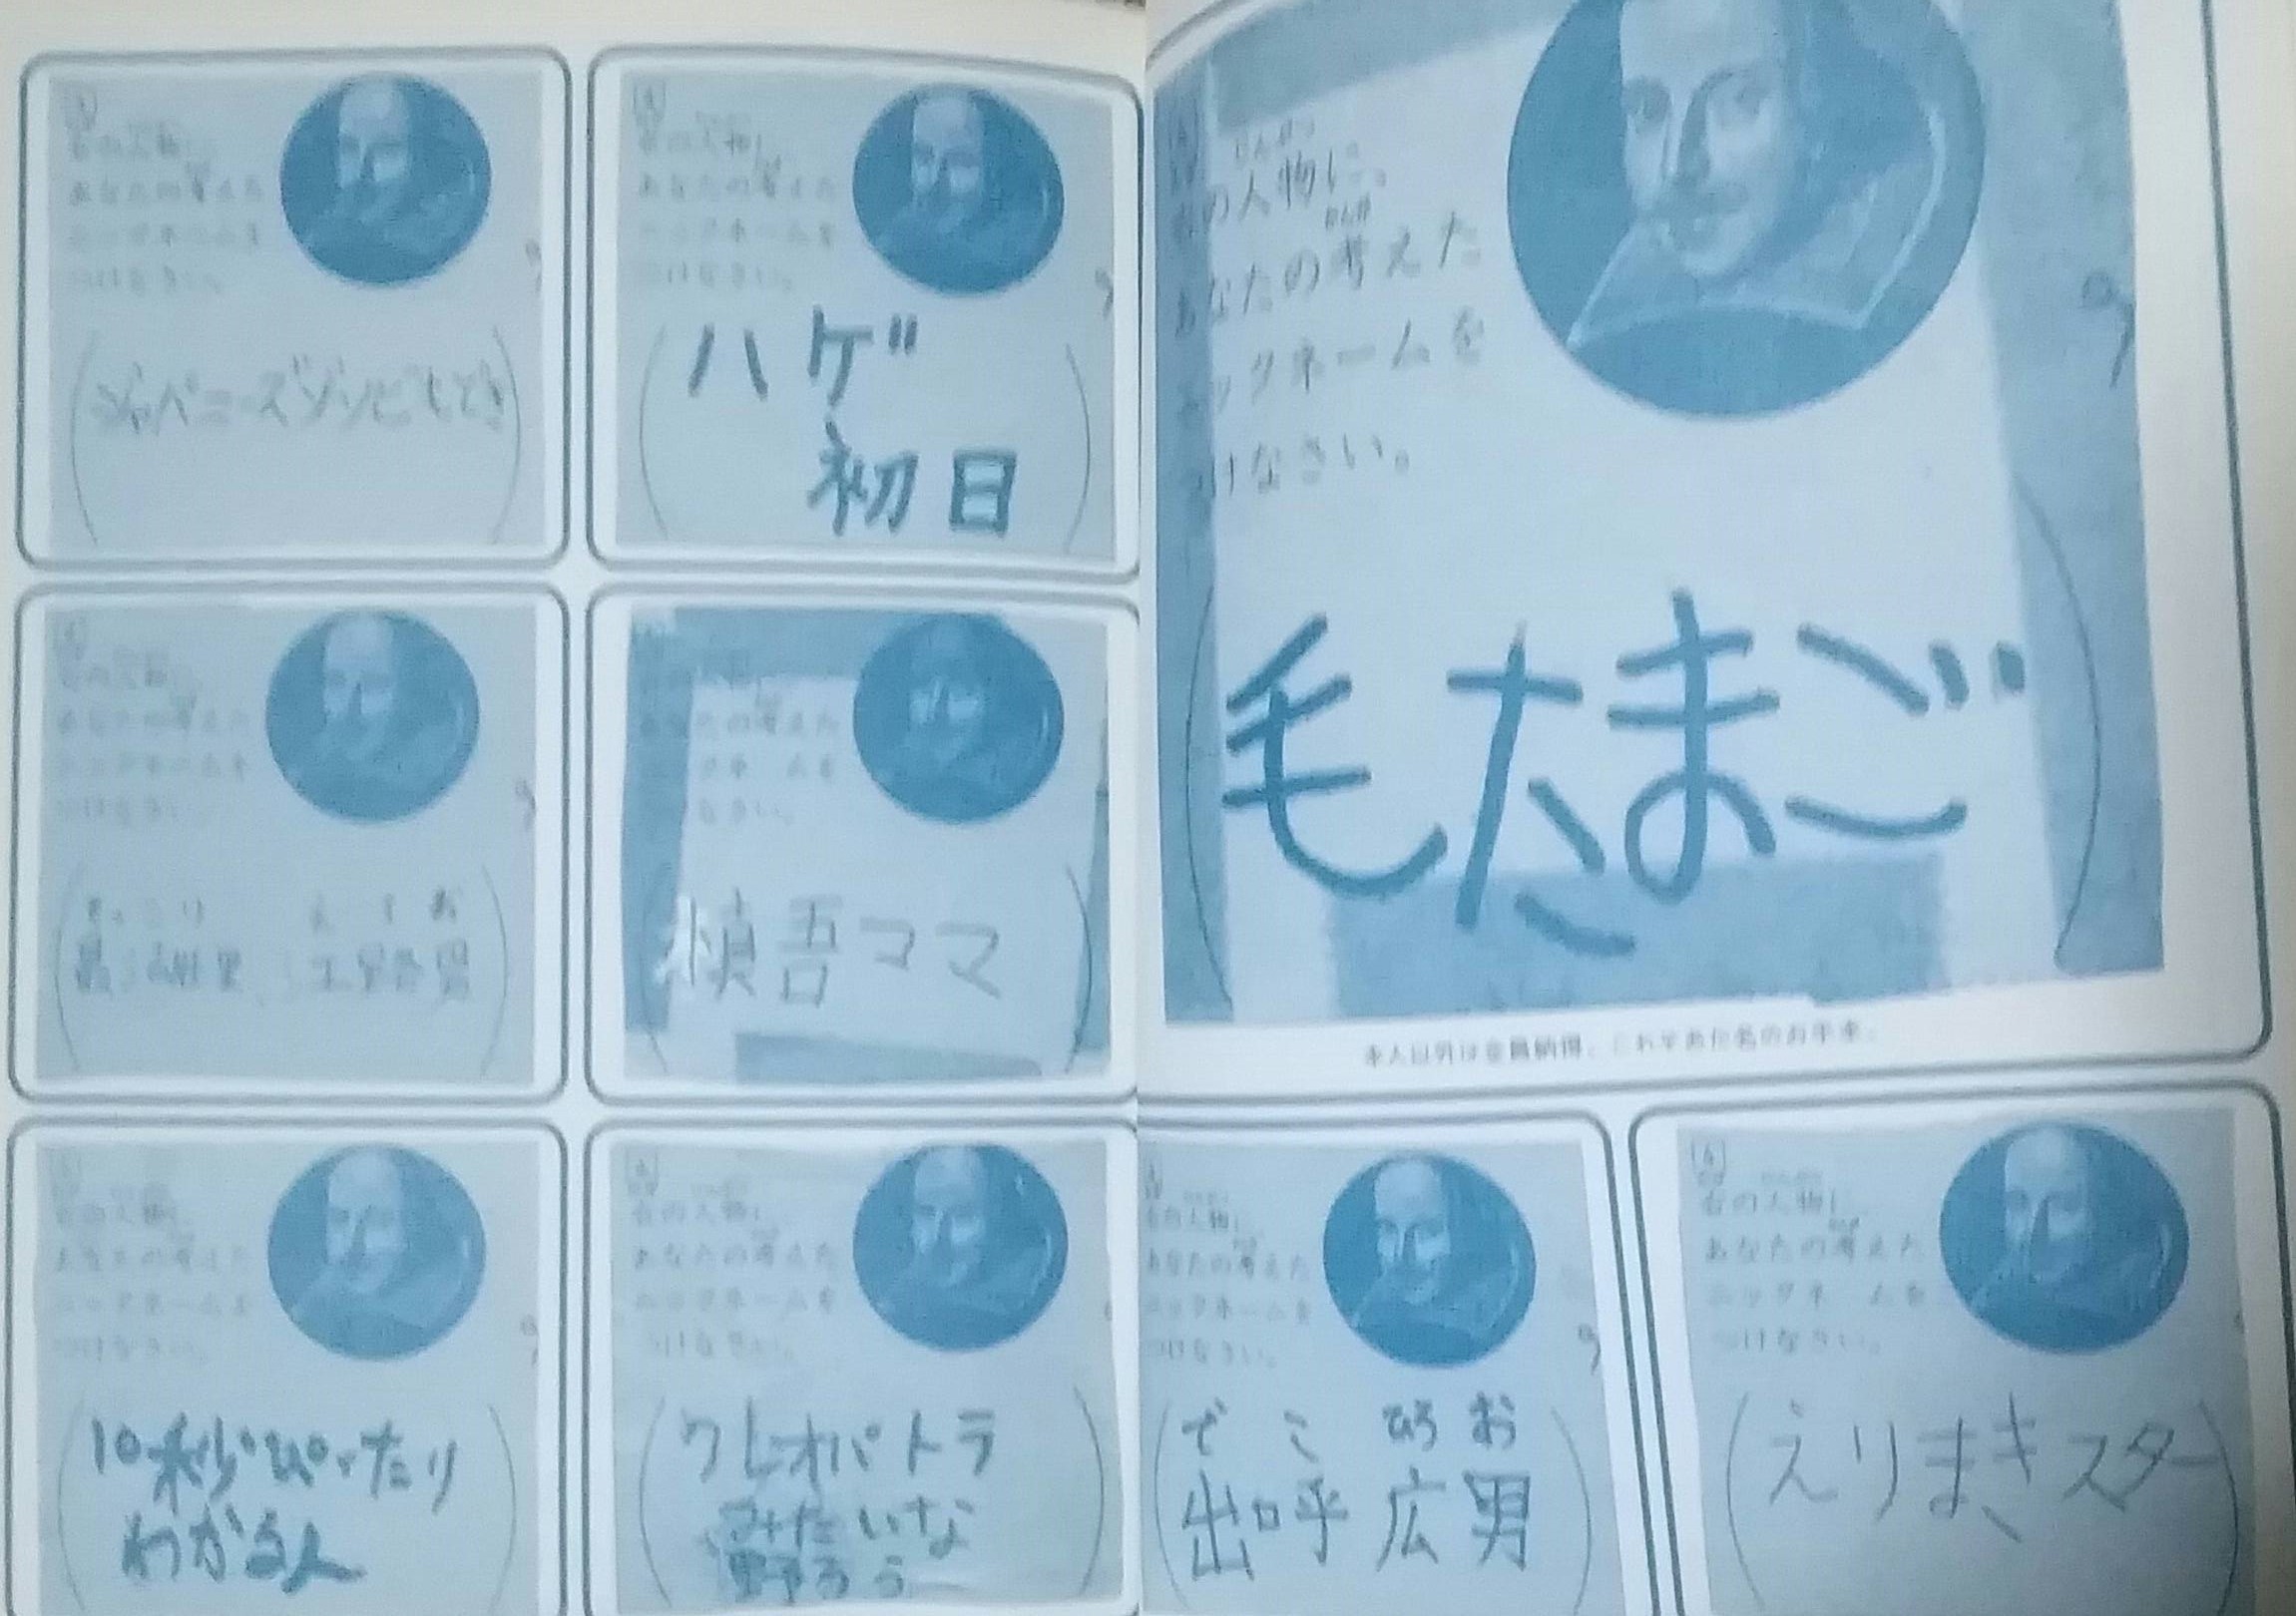 右の人物に、
あなたの考えた
ニックネームを
つけなさい。
ジャパニーズゾンビもどき
右の人物に、
あなたの考えた
ニックネームを
つけなさい。
ハゲ
初日
じんぶつ
右の人物に、
かんが
あなたの考えた
ニックネームを
つけなさい。
毛たまご
本人以外は全員納得。これぞあだ名のお手本。
右の人物に、
あなたの考えた
ニックネームを
つけなさい。
右の人物に、
あなたの考えた
ニックネームを
つけなさい。
慎吾ママ
右の人物に、
あなたの考えた
ニックネームを
つけなさい。
10秒ぴったり
わかる人
右の人物に、
あなたの考えた
ニックネームを
つけなさい。
クレオパトラ
みたいな
野ろう
右の人物に、
あなたの考えた
ニックネームを
つけなさい。
で こ ひろ お
出呼 広男
右の人物に、
あなたの考えた
ニックネームを
つけなさい。
えりまきスター